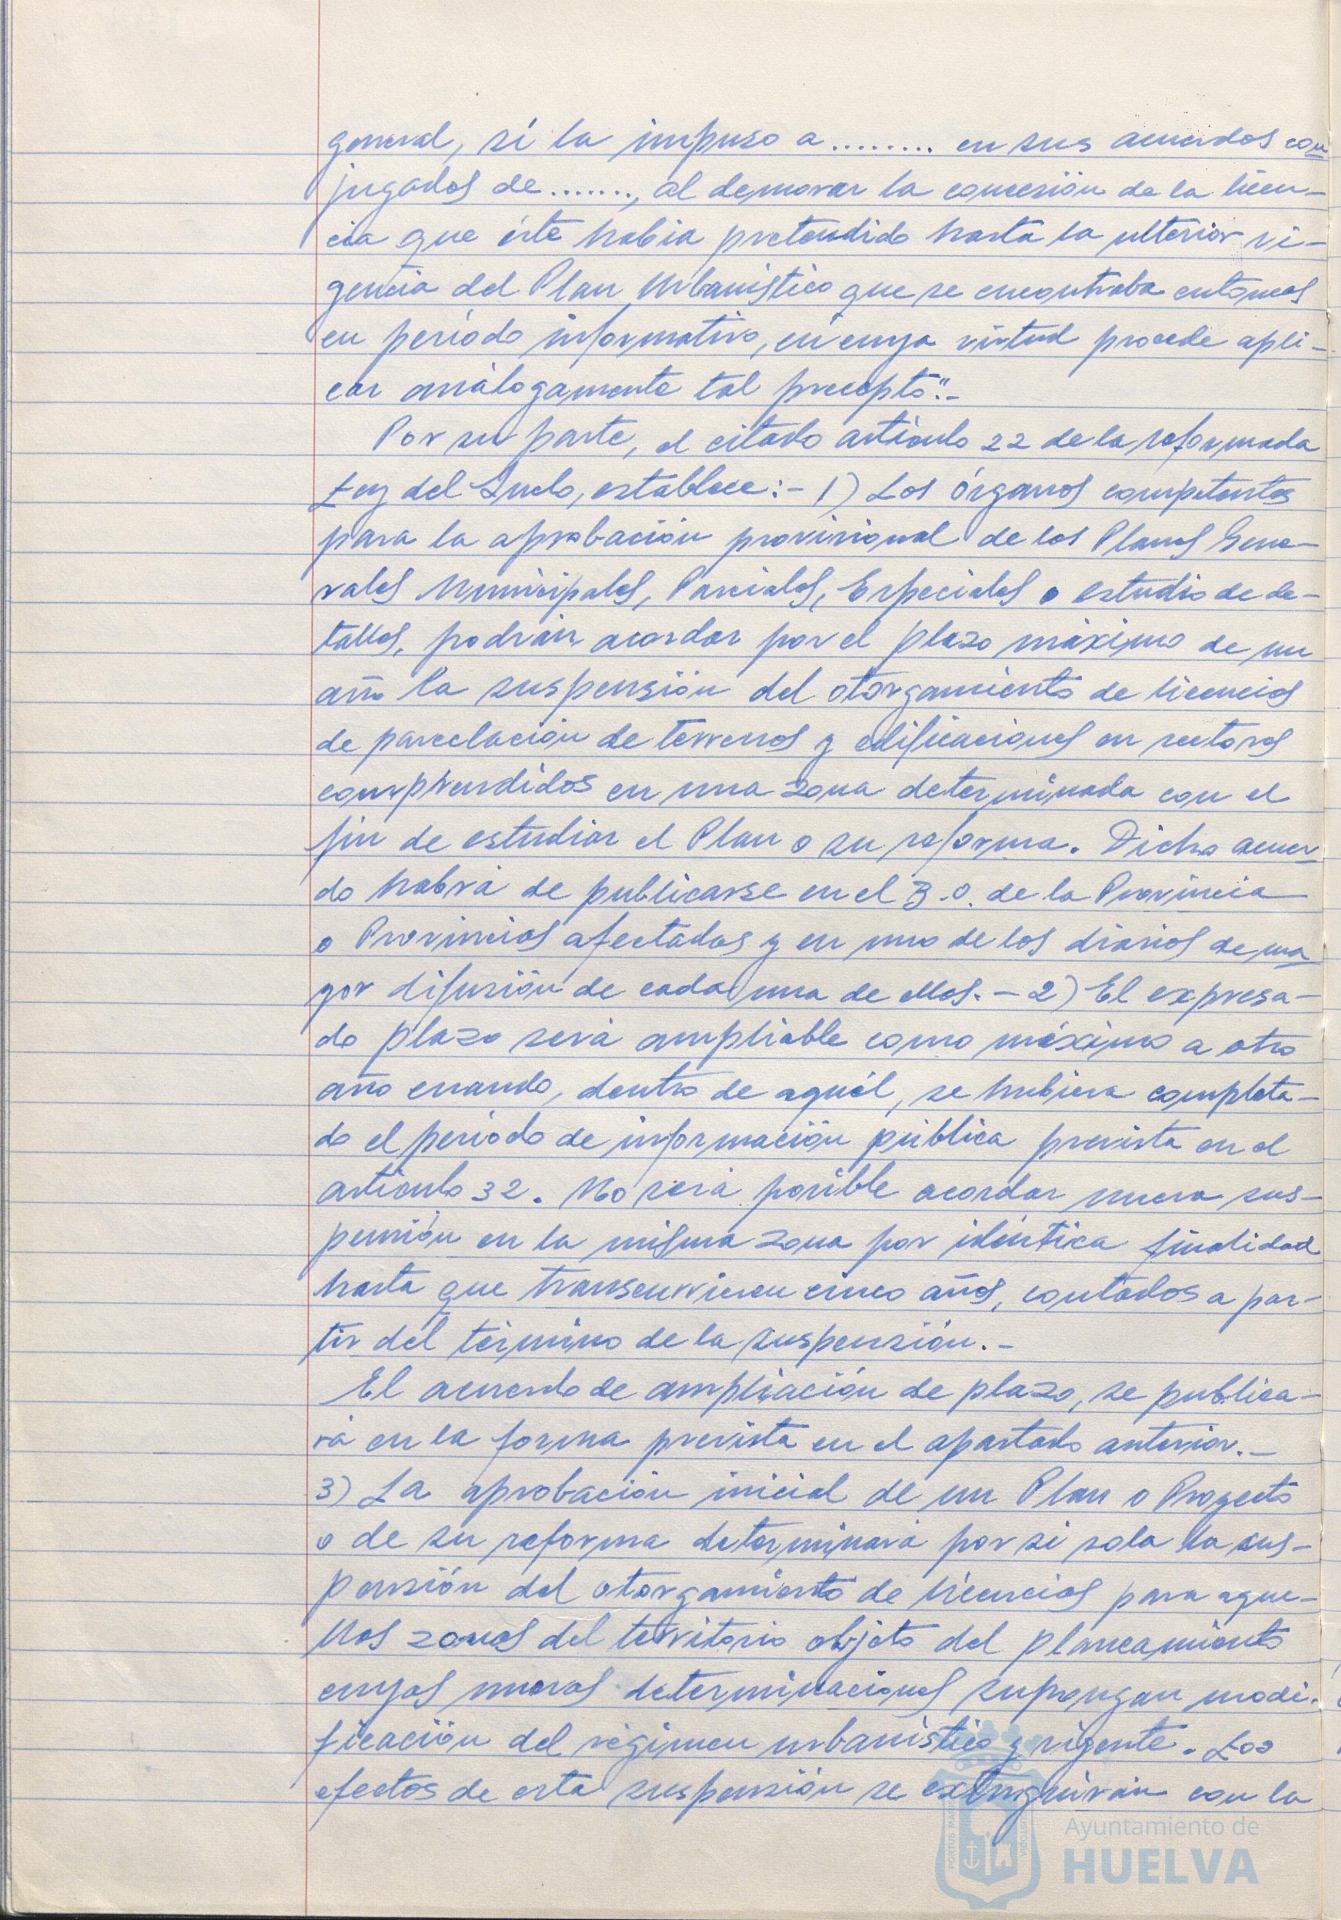 general, sí la impuso a ........ en sus acuerdos con
jugados de ......., al demorar la concesión de la licen-
cia que éste habia pretendido hasta la ulterior vi-
gencia del Plan Urbanistico que se encontraba entonces
en período informativo, en cuya virtud procede apli-
car análogamente tal precepto".-
Por su parte, el citado artículo 22 de la reformada
Ley del Suelo, establece:- 1) Los órganos competentes
para la aprobación provisional de los Planes Gene-
rales Municipales, Parciales, Especiales o estudio de de-
talles, podrán acordar por el plazo máximo de un
año la suspensión del otorgamiento de licencias
de parcelación de terrenos y edificaciones en sectores
comprendidos en una zona determinada con el
fin de estudiar el Plan o su reforma. Dicho acuer-
do habrá de publicarse en el B.O. de la Provincia
o Provincias afectadas y en uno de los diarios de ma
yor difusión de cada una de ellas. - 2) El expresa-
do plazo será ampliable como máximo a otro
año cuando, dentro de aquél, se hubiera completa-
do el período de información pública prevista en el
artículo 32. No será posible acordar nueva sus-
pensión en la misma zona por idéntica finalidad
hasta que transcurriesen cinco años, contados a par-
tir del término de la suspensión.-
El acuerdo de ampliación de plazo, se publica-
rá en la forma prevista en el apartado anterior.-
3) La aprobación inicial de un Plan o Proyecto
o de su reforma determinará por si sola la sus-
pensión del otorgamiento de licencias para aque-
llas zonas del territorio objeto del planeamiento
cuyas nuevas determinaciones supongan modi-
ficación del régimen urbanístico y vigente. Los
efectos de esta suspensión se extinguirán con la
Ayuntamiento de
HUELVA